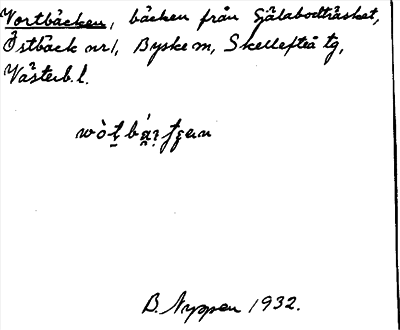 Vortbäcken, bäcken från Gälabodträsket,
Östbäck nr1, Byske m, Skellefteå tg,
Västerb. l.
B. Nyppen 1932.